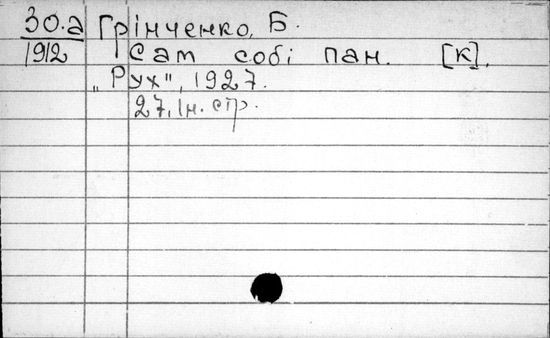 30.а Грінченко, Б.
1912 Сам собі пан. [К],
„Рух", 1927.
27, Ін. стр.